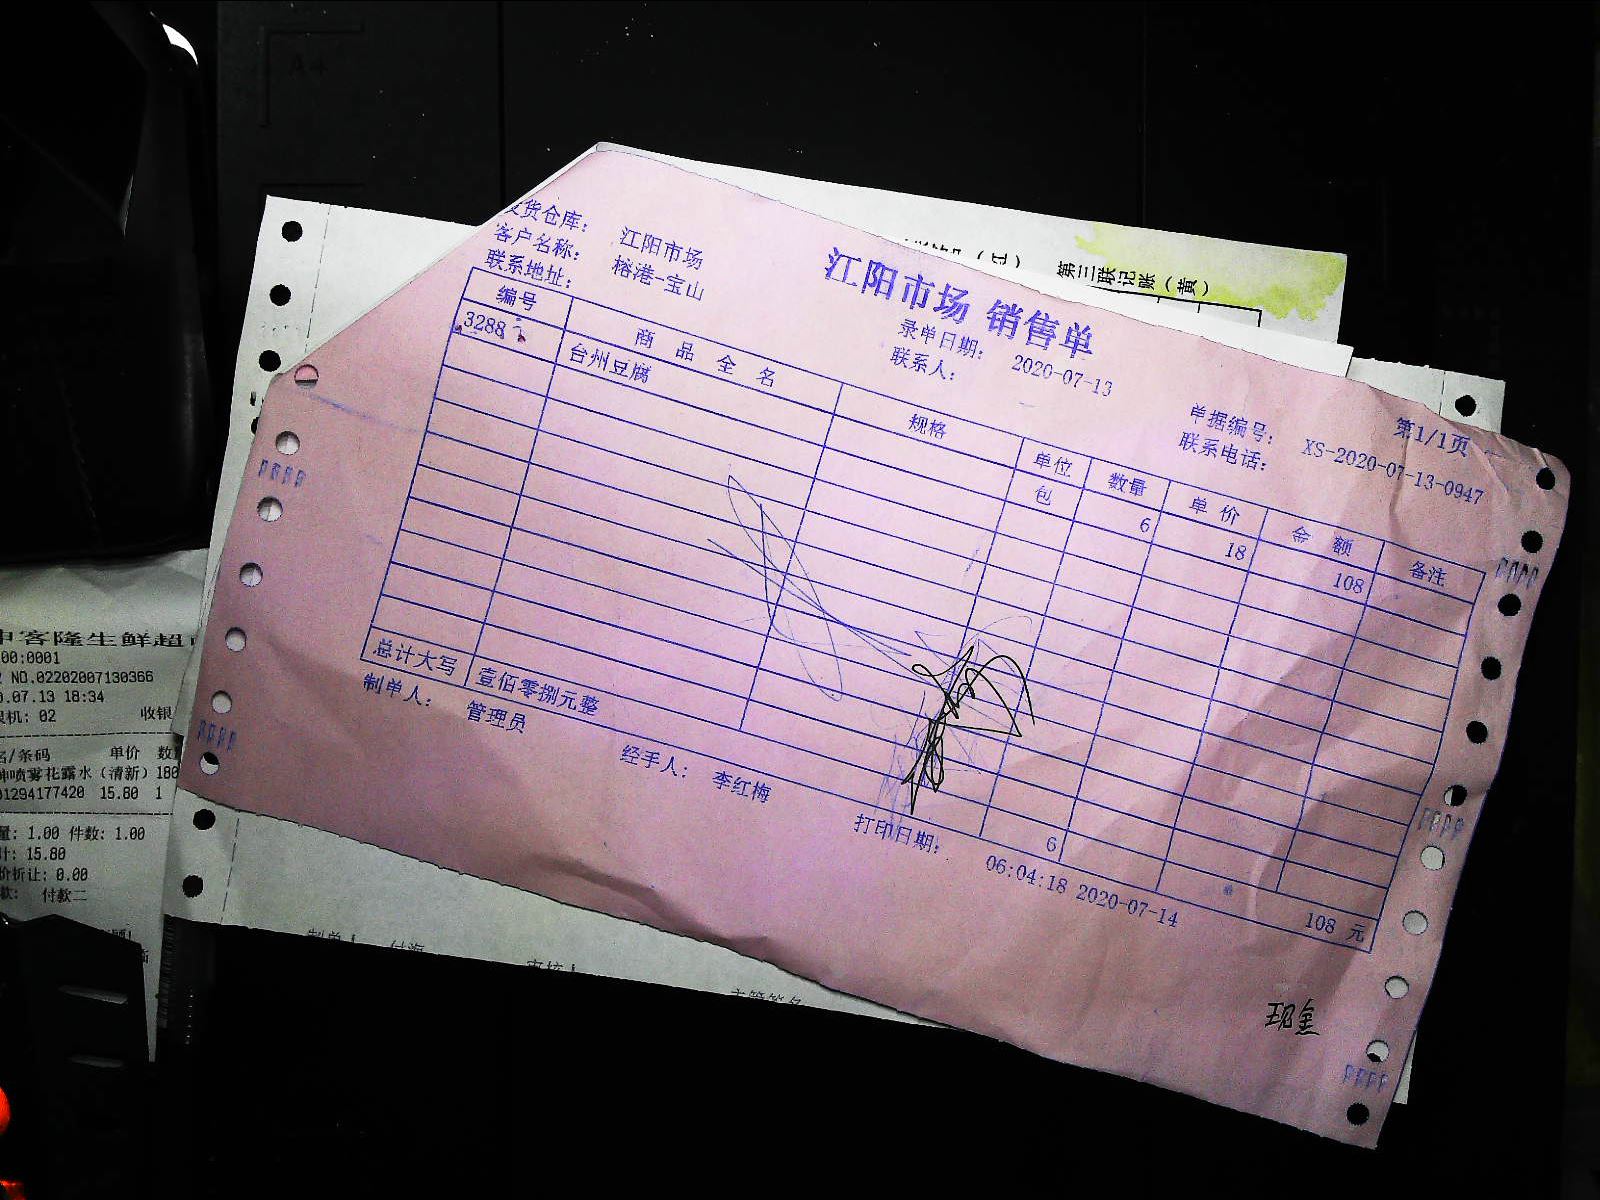 江阳市场 销售单
第1/1页
发货仓库： 江阳市场
录单日期： 2020-07-13
单据编号： XS-2020-07-13-0947
客户名称： 榕港-宝山
联系人：
联系电话：
联系地址：
编号 商品全名 规格 单位 数量 单价 金额 备注
3288 台州豆腐 包 6 18 108
总计大写 壹佰零捌元整 6 108 元
制单人： 管理员
经手人： 李红梅
打印日期： 06:04:18 2020-07-14
第三联记账（黄）
客隆生鲜超
00:0001
NO.02202007130366
0.07.13 18:34
机: 02 收银
名/条码 单价 数
喷雾花露水（清新）180
01294177420 15.80 1
量: 1.00 件数: 1.00
计: 15.80
价折让: 0.00
款: 付款二
制单人 付海
审核人
主管签名